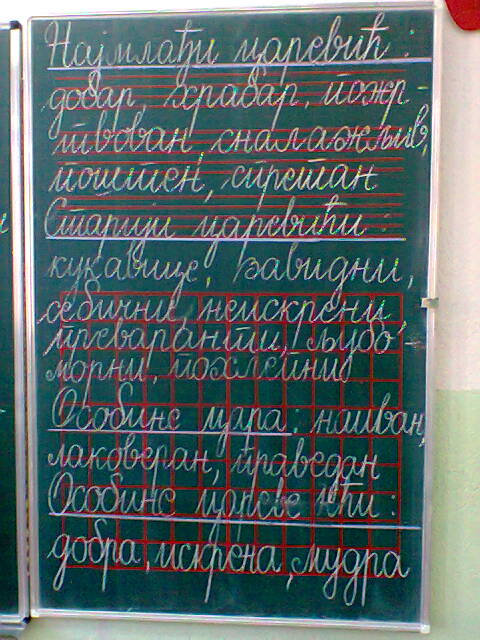 Најмлађи царевић:
добар, храбар, пожр-
твован, сналажљив,
поштен, спретан
Старији царевићи:
кукавице, завидни,
себични, неискрени,
преваранти, љубо-
морни, похлепни
Особине цара: наиван,
лаковеран, праведан
Особине цареве кћи:
добра, искрена, мудра